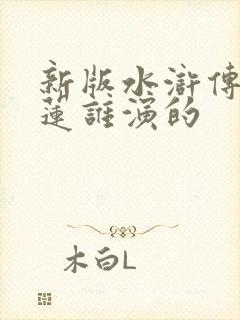 新版水滸傳
蓮誰演的
木白L